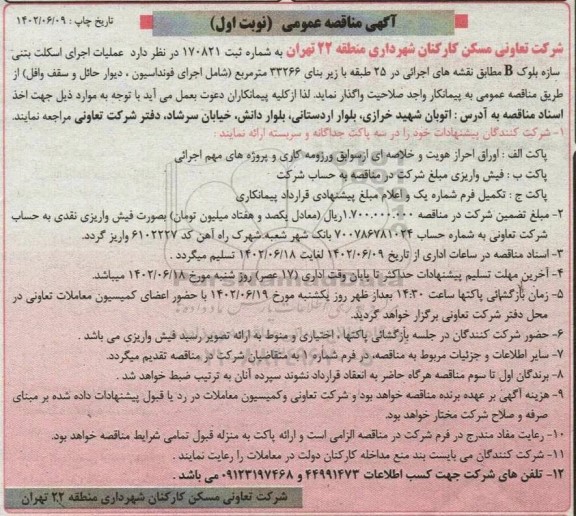 آگهی مناقصه عمومی (نوبت اول)
تاریخ چاپ : ۱۴۰۲/۰۶/۰۹
شرکت تعاونی مسکن کارکنان شهرداری منطقه ۲۲ تهران به شماره ثبت ۱۷۰۸۲۱ در نظر دارد عملیات اجرای اسکلت بتنی
سازه بلوک B مطابق نقشه های اجرائی در ۲۵ طبقه با زیر بنای ۳۳۲۶۶ مترمربع (شامل اجرای فونداسیون ، دیوار حائل و سقف وافل) از
طریق مناقصه عمومی به پیمانکار واجد صلاحیت واگذار نماید. لذا ازکلیه پیمانکاران دعوت بعمل می آید با توجه به موارد ذیل جهت اخذ
اسناد مناقصه به آدرس : اتوبان شهید خرازی، بلوار اردستانی، بلوار دانش، خیابان سرشاد، دفتر شرکت تعاونی مراجعه نمایند.
۱- شرکت کنندگان پیشنهادات خود را در سه پاکت جداگانه و سربسته ارائه نمایند :
پاکت الف : اوراق احراز هویت و خلاصه ای ازسوابق ورزومه کاری و پروژه های مهم اجرائی
پاکت ب : فیش واریزی مبلغ شرکت در مناقصه به حساب شرکت
پاکت ج : تکمیل فرم شماره یک و اعلام مبلغ پیشنهادی قرارداد پیمانکاری
۲- مبلغ تضمین شرکت در مناقصه ۱.۷۰۰.۰۰۰.۰۰۰ریال (معادل یکصد و هفتاد میلیون تومان) بصورت فیش واریزی نقدی به حساب
شرکت تعاونی به شماره حساب ۷۰۰۷۸۶۷۸۱۰۲۴ بانک شهر شعبه شهرک راه آهن کد ۶۱۰۲۲۲۷ واریز گردد.
۳- اسناد مناقصه در ساعات اداری از تاریخ ۱۴۰۲/۰۶/۰۹ لغایت ۱۴۰۲/۰۶/۱۸ تسلیم میگردد .
۴- آخرین مهلت تسلیم پیشنهادات حداکثر تا پایان وقت اداری (۱۷ عصر) روز شنبه مورخ ۱۴۰۲/۰۶/۱۸ میباشد.
۵- زمان بازگشائی پاکتها ساعت ۱۴:۳۰ بعداز ظهر روز یکشنبه مورخ ۱۴۰۲/۰۶/۱۹ با حضور اعضای کمیسیون معاملات تعاونی در
محل دفتر شرکت تعاونی برگزار خواهد گردید.
۶- حضور شرکت کنندگان در جلسه بازگشائی پاکتها ، اختیاری و منوط به ارائه تصویر رسید فیش واریزی می باشد .
۷- سایر اطلاعات و جزئیات مربوط به مناقصه در فرم شماره ۱ به متقاضیان شرکت در مناقصه تقدیم میگردد.
۸- برندگان اول تا سوم مناقصه هرگاه حاضر به انعقاد قرارداد نشوند سپرده آنان به ترتیب ضبط خواهد شد .
۹- هزینه آگهی بر عهده برنده مناقصه خواهد بود و شرکت تعاونی وکمیسیون معاملات در رد یا قبول پیشنهادات داده شده بر مبنای
صرفه و صلاح شرکت مختار خواهد بود.
۱۰- رعایت مفاد مندرج در فرم شرکت در مناقصه الزامی است و ارائه پاکت به منزله قبول تمامی شرایط مناقصه خواهد بود.
۱۱- شرکت کنندگان می بایست بند منع مداخله کارکنان دولت در معاملات را رعایت نمایند .
۱۲- تلفن های شرکت جهت کسب اطلاعات ۴۴۹۹۱۴۷۳ و ۰۹۱۲۳۱۹۷۴۶۸ می باشد .
شرکت تعاونی مسکن کارکنان شهرداری منطقه ۲۲ تهران